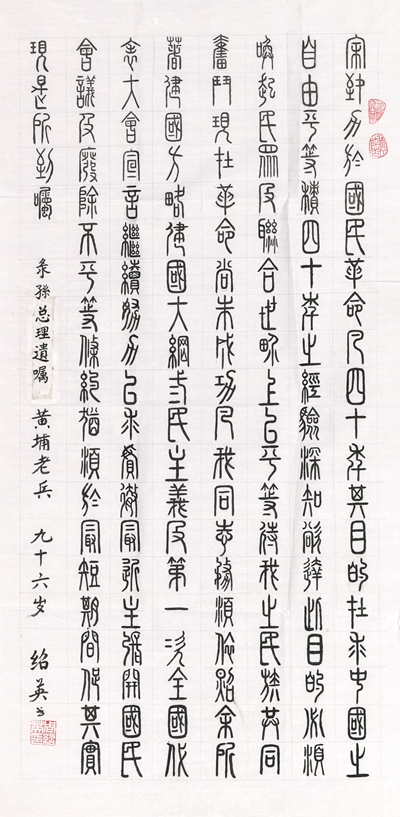 余致力於國民革命凡四十年其目的在求中國之
自由平等積四十年之經驗深知欲達此目的必須
喚起民眾及聯合世界上以平等待我之民族共同
奮鬥現在革命尚未成功凡我同志務須依照余所
著建國方略建國大綱三民主義及第一次全國代
表大會宣言繼續努力以求貫徹最近主張開國民
會議及廢除不平等條約猶須於最短期間促其實
現是所致囑 录孫总理遺嘱 黄埔老兵 九十六岁 绍英书